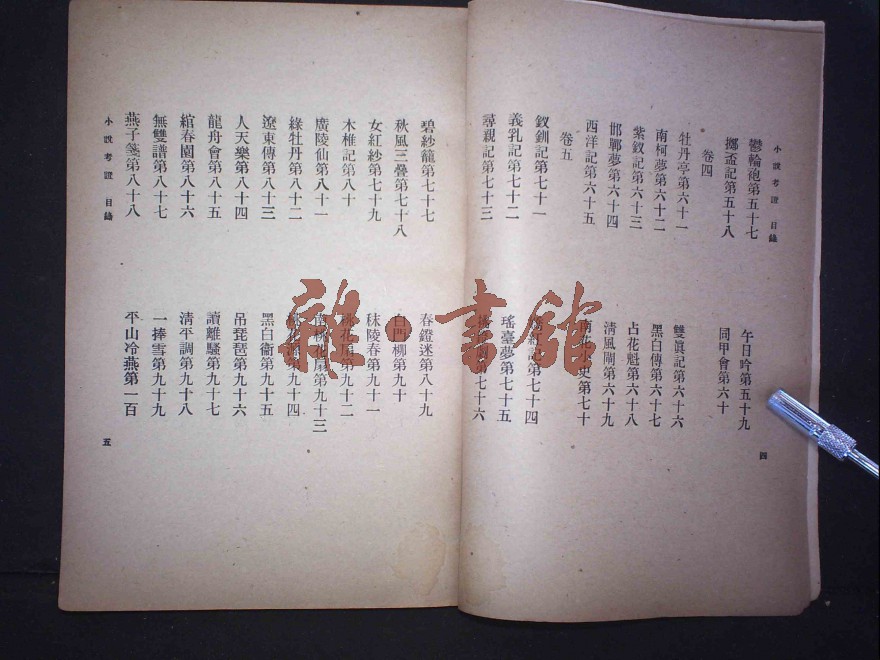 小說考證 目錄
鬱輪袍第五十七
擲盃記第五十八
午日吟第五十九
同甲會第六十
卷四
牡丹亭第六十一
南柯夢第六十二
紫釵記第六十三
邯鄲夢第六十四
西洋記第六十五
雙眞記第六十六
黑白傳第六十七
占花魁第六十八
清風閘第六十九
南花小史第七十
卷五
釵釧記第七十一
義乳記第七十二
尋親記第七十三
紅記第七十四
瑤臺夢第七十五
第七十六
四
碧紗籠第七十七
秋風三疊第七十八
女紅紗第七十九
木椎記第八十
廣陵仙第八十一
綠牡丹第八十二
遼東傳第八十三
人天樂第八十四
龍舟會第八十五
綰春園第八十六
無雙譜第八十七
燕子箋第八十八
春鐙迷第八十九
白門柳第九十
秣陵春第九十一
桃花扇第九十二
南桃花扇第九十三
桃花源第九十四
黑白衞第九十五
吊琵琶第九十六
讀離騷第九十七
清平調第九十八
一捧雪第九十九
平山冷燕第一百
小說考證 目錄
五
雜·書館